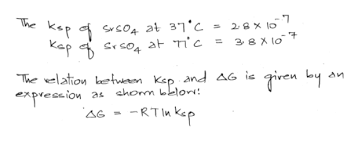 The Ksp of SrSO4 at 37°C = 2.8 × 10^-7
Ksp of SrSO4 at 77°C = 3.8 × 10^-7
The relation between Ksp and ΔG is given by an
expression as shown below:
ΔG = -RTln Ksp